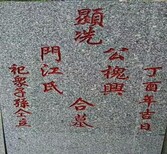 丁酉年吉日
顯
公槐興
合墓
洸
門江氏
祀男子孫仝立